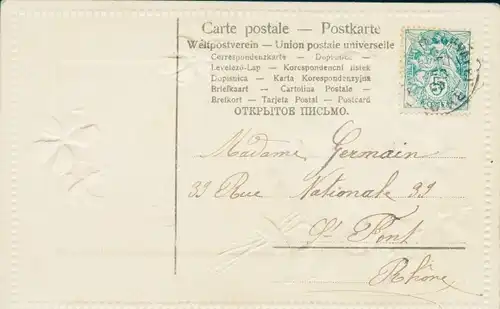 Carte postale — Postkarte
Weltpostverein — Union postale universelle
Correspondenzkarte — Dopisnica —
Levelező-Lap — Korespondencni listek
Dopisnica — Karta Korespondenzyjna
Briefkaart — Cartolina Postale —
Brefkort — Tarjeta Postal — Postcard
ОТКРЫТОЕ ПИСЬМО.
Madame Germain
39 Rue Nationale 39
St Font
Rhône